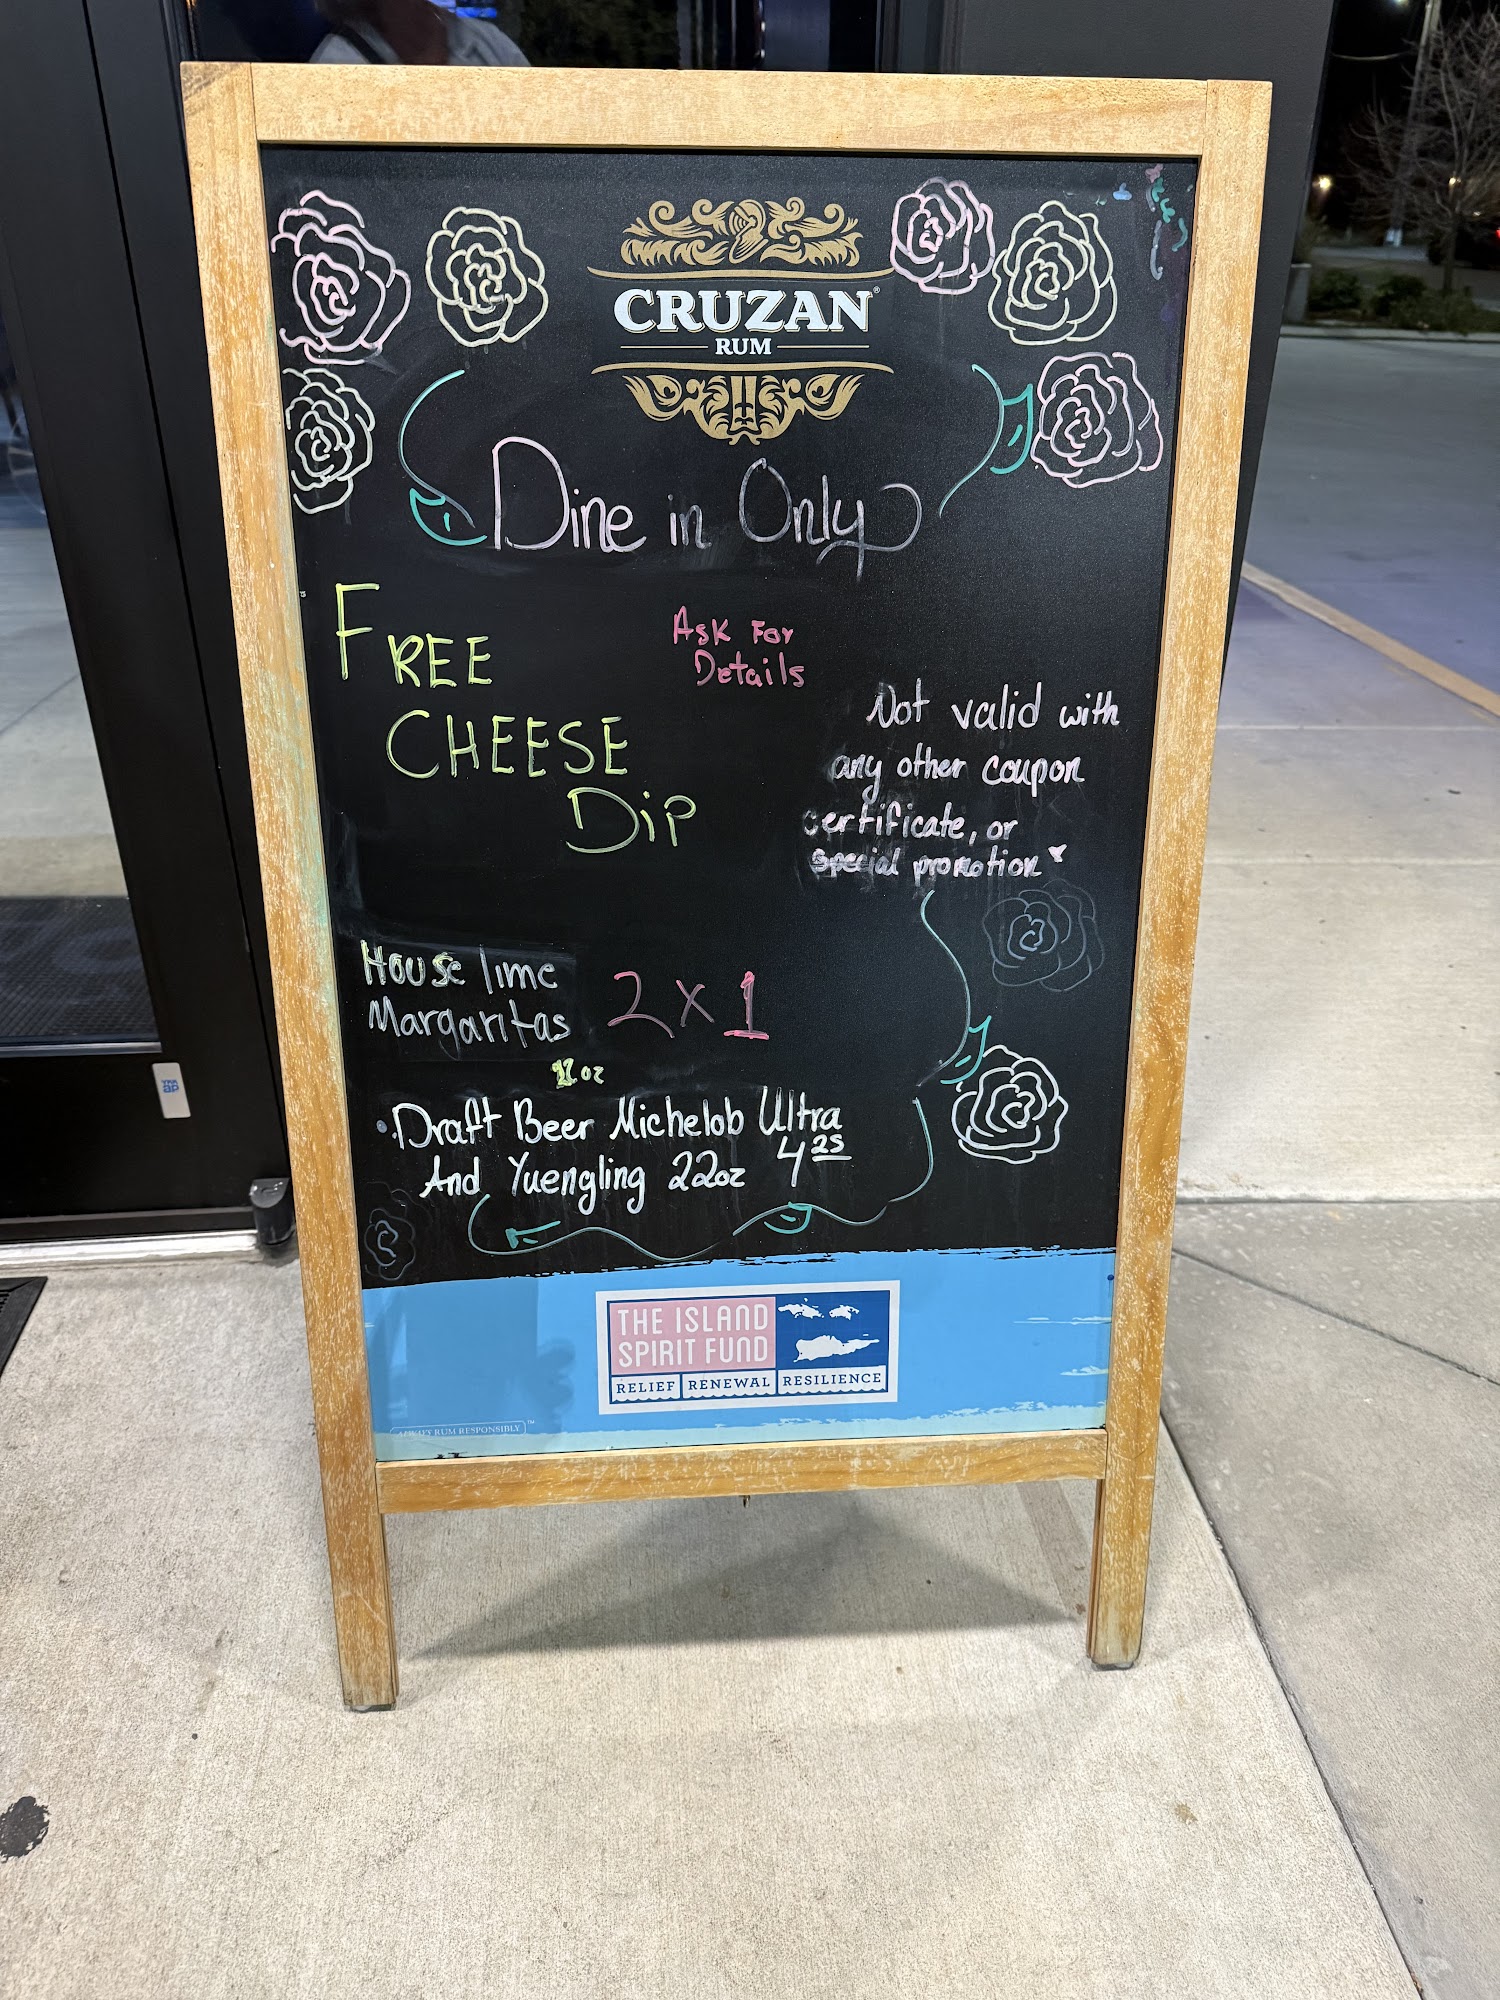 CRUZAN®
RUM
Dine in Only
FREE
CHEESE
Dip
Ask For
Details
Not valid with
any other coupon
certificate, or
special promotion
House lime
Margaritas
2x1
12oz
Draft Beer Michelob Ultra
And Yuengling 22oz 4 25
THE ISLAND
SPIRIT FUND
RELIEF RENEWAL RESILIENCE
ALWAYS RUM RESPONSIBLY ™